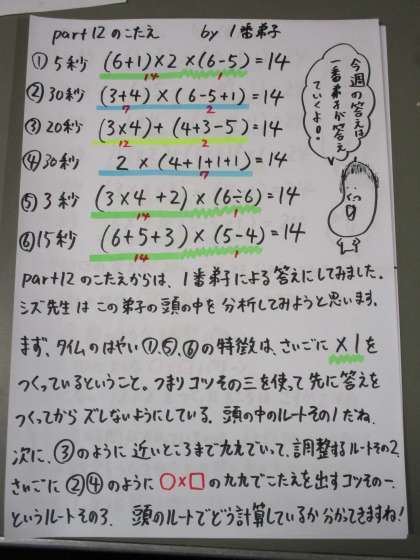 part12のこたえ by 1番弟子
① 5秒 (6+1)×2×(6-5)=14
14 1
② 30秒 (3+4)×(6-5+1)=14
7 2
③ 20秒 (3×4)+(4+3-5)=14
12 2
④ 30秒 2×(4+1+1+1)=14
7
⑤ 3秒 (3×4+2)×(6÷6)=14
14 1
⑥ 15秒 (6+5+3)×(5-4)=14
14 1
今週の答えは
一番弟子が答え
ていくよ!
part12のこたえからは、1番弟子による答えにしてみました。
シズ先生はこの弟子の頭の中を分析してみようと思います。
まず、タイムのはやい①、⑤、⑥の特徴は、さいごに×1を
つくっているということ。つまりコツその三を使って先に答えを
つくってからズレないようにしている。頭の中のルートその1だね。
次に、③のように近いところまで九九でいって、調整するルートその2.
さいごに②④のように○×□の九九でこたえを出すコツその一、
というルートその3. 頭のルートでどう計算しているか分かってきますね!